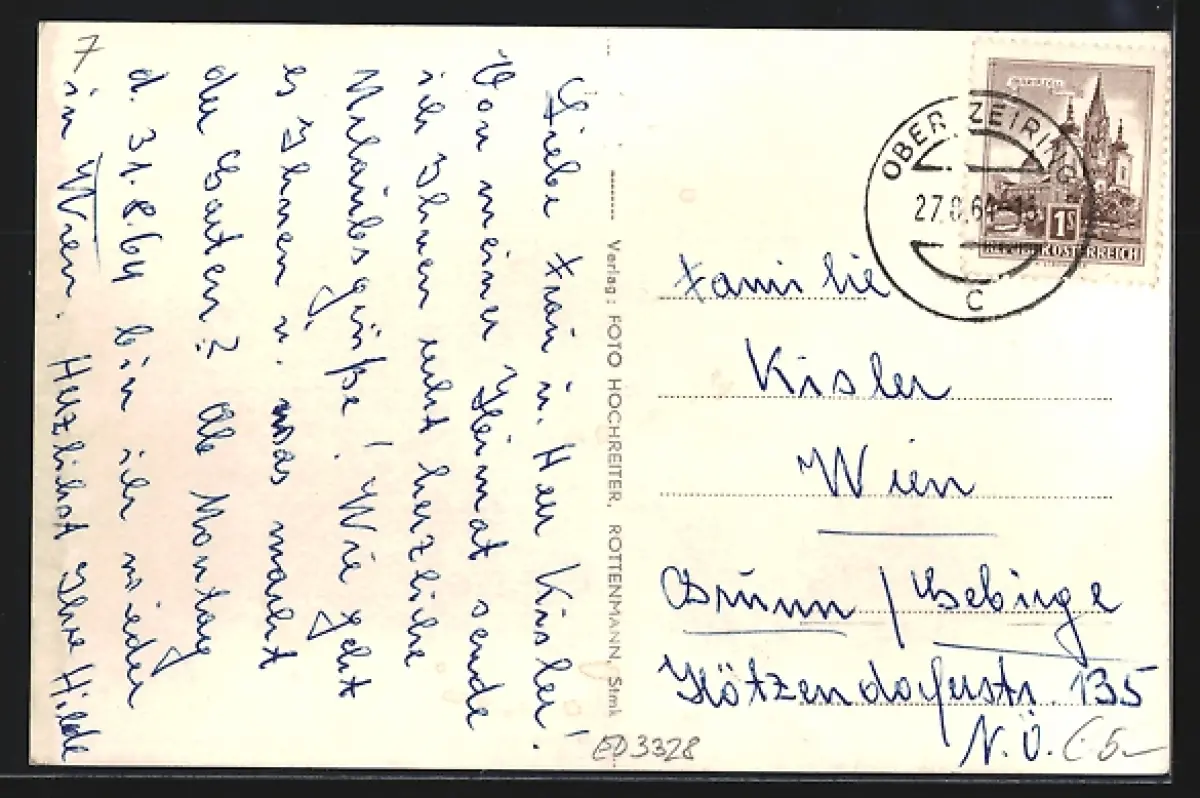 7
Liebe Frau u. Herr Kisler!
Von meiner Heimat sende
ich Ihnen recht herzliche
Urlaubsgrüße! Wie geht
es Ihnen u. was macht
der Garten? Ab Montag
d. 31.8.64 bin ich wieder
in Wien. Herzlichst Ihre Hilde
Verlag: FOTO HOCHREITER, ROTTENMANN, Stmk
MARIAZELL
1S
REPUBLIK ÖSTERREICH
OBER ZEIRING
27.8.64-15
C
Familie
Kisler
Wien
Brunn / Gebirge
Hötzendorferstr. 135
N.Ö. (5.-
ED3328